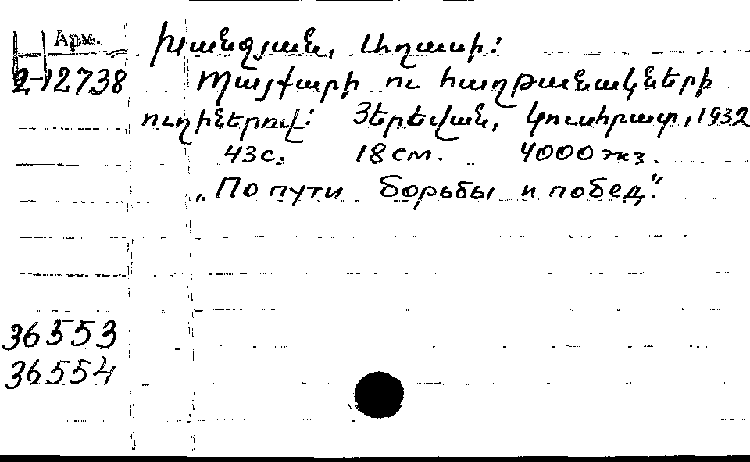 Арм. Խանզյան, Աղասի:
2-12738 Պայքարի ու հաղթանակների
ուղիներով: Յերեվան, Կուսհրատ, 1932
43с. 18см. 4000 экз.
„По пути борьбы и побед".
36553
36554